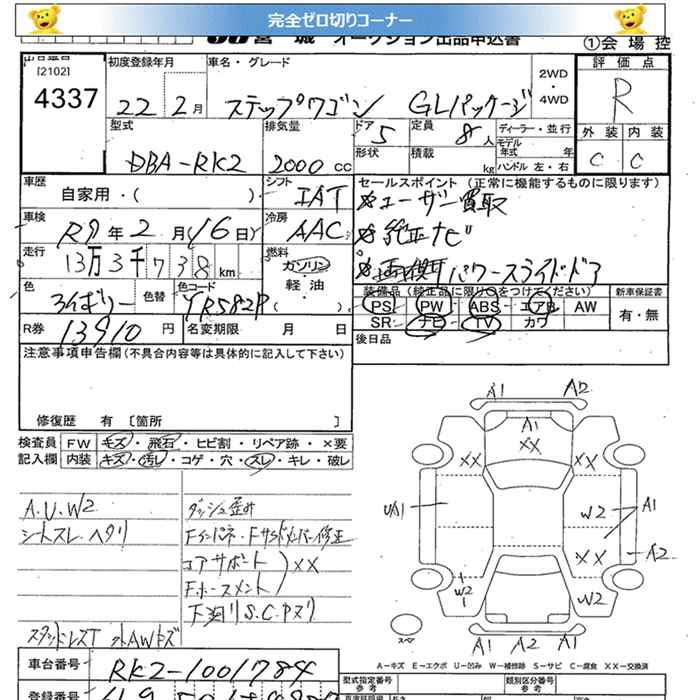 完全ゼロ切りコーナー
宮城 オークション出品申込書 ①会場控
[2102] 初度登録年月 車名・グレード 2WD・4WD 評価点
4337 22 2月 ステップワゴン GLパッケージ R
型式 排気量 ドア 定員 ディーラー・並行 外装 内装
DBA-RK2 2000 CC 5 8人 モデル年式 年 C C
形状 積載 kg ハンドル 左・右
車歴 自家用・( ) シフト IAT セールスポイント (正常に機能するものに限ります)
ユーザー買取
車検 R7年2月(16日) 冷房 AAC 純正ナビ
走行 13万3千738km 燃料 ガソリン・軽油・( ) 両側パワースライドドア
色 色替 色コード YR582P
装備品 (純正品に限り○をつけてください) 新車保証書
PS PW ABS エアB AW 有・無
SR ナビ TV カワ
R券 13910円 名変期限 月 日
後日品
注意事項申告欄(不具合内容等は具体的に記入して下さい)
修復歴 有 〔箇所 〕
検査員 FW キズ・飛石・ヒビ割・リペア跡・×要
記入欄 内装 キズ・汚レ・コゲ・穴・スレ・キレ・破レ
A1 A2
A1
XX
XX XX
A.U.W2 ダッシュ歪み
シートスレ ヘタリ
UA1 W2 A1
コアサポート XX
XX A2
W2 W2
下廻りS.C.Pヌリ
A1 A2 A1
A-キズ E-エクボ U-凹み W-補修跡 S-サビ C-腐食 XX-交換済
車台番号 RK2-1001784 型式指定番号 参考 類別区分番号 参考
登録番号